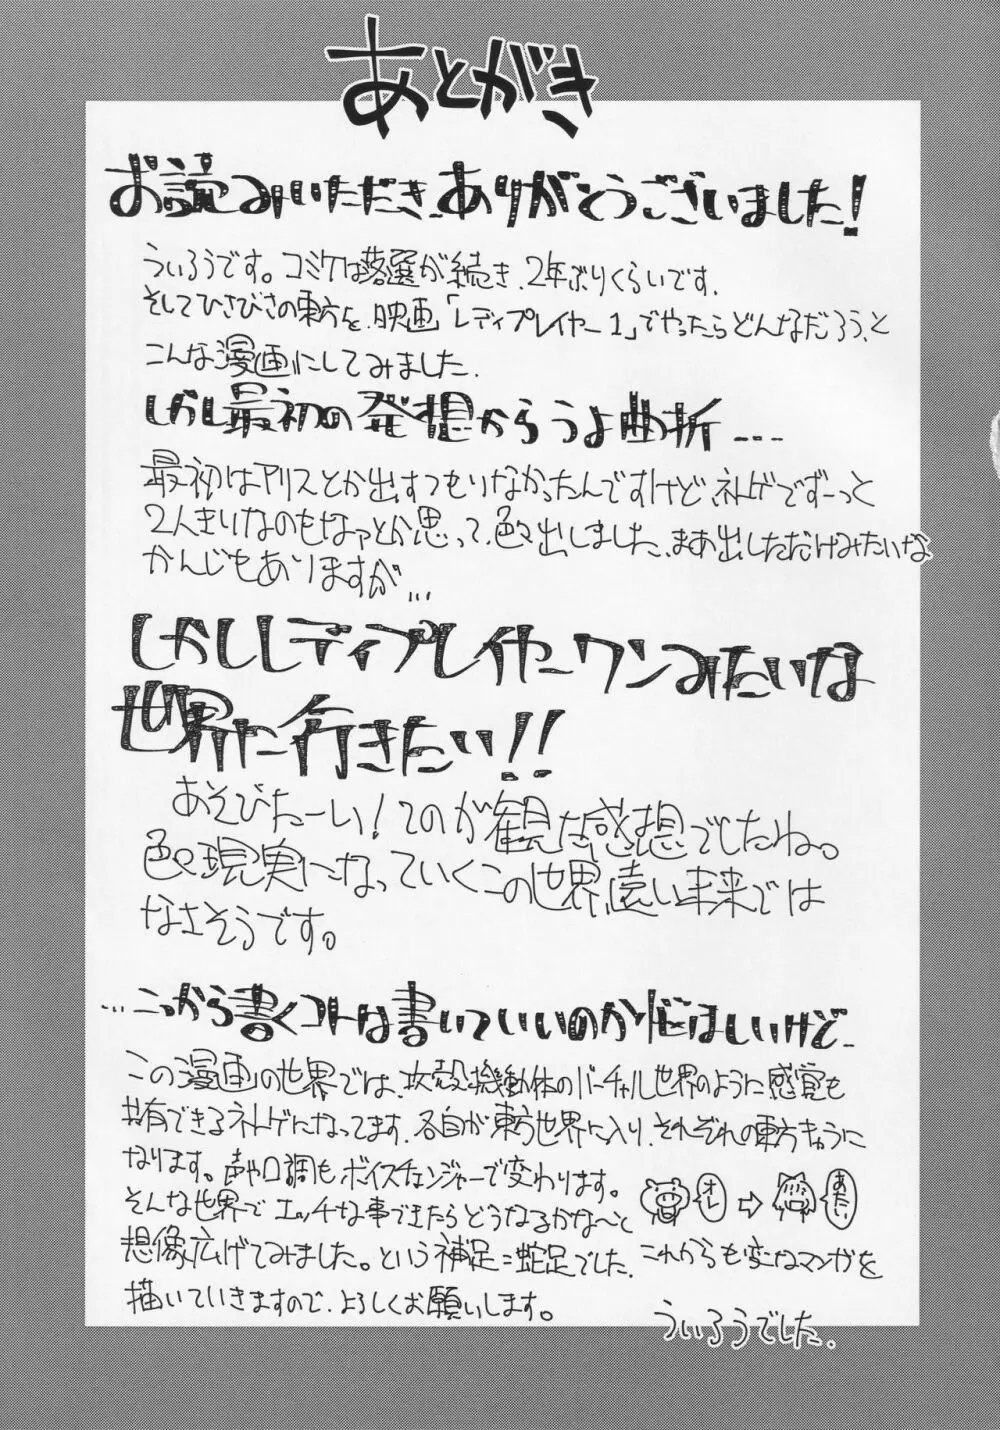 あとがき
お読みいただき、ありがとうございました!
ういろうです。コミケは落選が続き、2年ぶりくらいです。
そしてひさびさの東方を、映画「レディプレイヤー1」でやったらどんなだろう、と
こんな漫画にしてみました。
しかし最初の発想からうよ曲折....
最初はアリスとか出すつもりなかったんですけど、ネトゲでずーっと
2人きりなのもなァとか思って、色々出しました、まあ出しただけみたいな
かんじもありますが...
しかしレディプレイヤーワンみたいな
世界に行きたい!!
あそびたーい!てのが観た感想でしたね。
色々現実になっていくこの世界、遠い未来では
なさそうです。
...こっから書くコトは書いていいのか
この漫画の世界では、攻殻機動体のバーチャル世界のように感覚も
共有できるネトゲになってます。各自が東方世界に入り、それぞれの東方きゃらに
なります。声や口調もボイスチェンジャーで変わります。
オレ
⇨
あたい
そんな世界でエッチな事できたらどうなるかな〜と
想像広げてみました。という補足=蛇足でした。これからも変なマンガを
描いていきますので、よろしくお願いします。
ういろうでした。